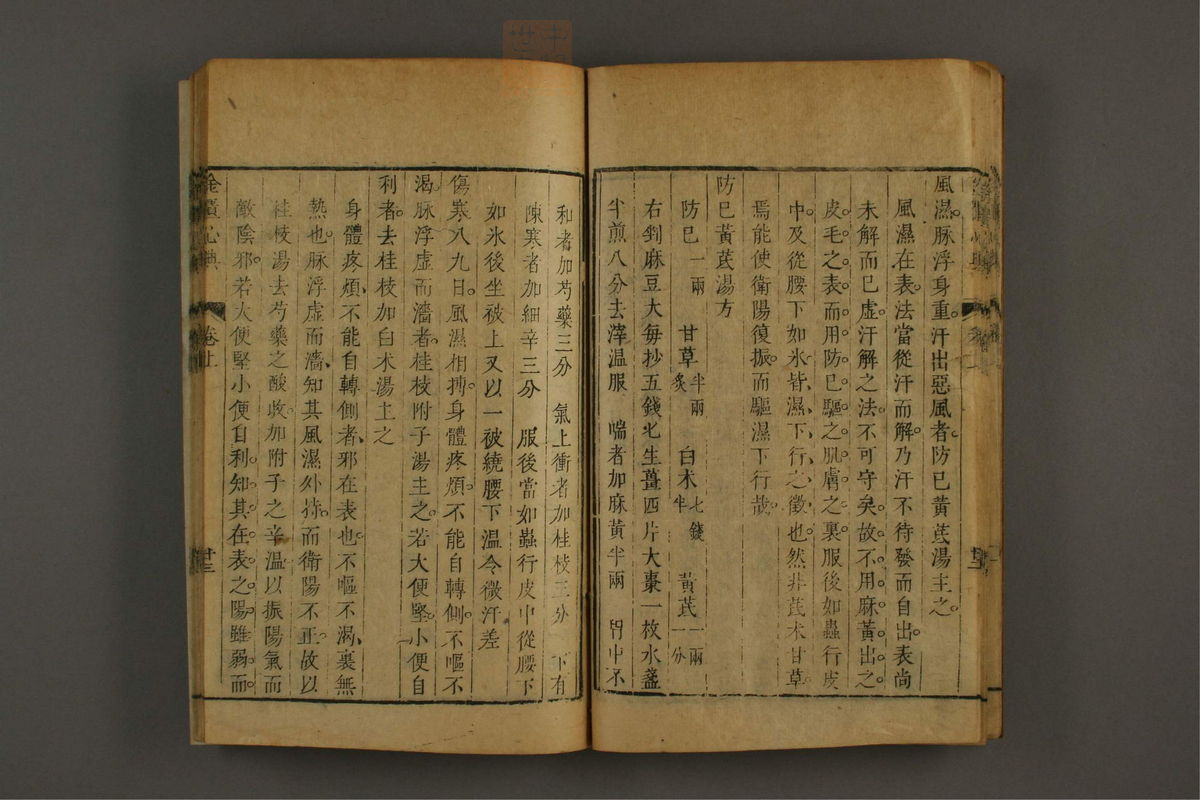 風濕脉浮身重汗出惡風者防巳黃芪湯主之
風濕在表法當從汗而解乃汗不待發而自出表尚
未解而巳虛汗解之法不可守矣故不用麻黃出之
皮毛之表而用防巳驅之肌膚之裏服後如蟲行皮
中及從腰下如氷皆濕下行之徵也然非芪朮甘草
焉能使衛陽復振而驅濕下行哉
防巳黃芪湯方
防巳一兩 甘草半兩炙 白朮七錢半 黃芪一兩一分
右剉麻豆大每抄五錢匕生薑四片大棗一枚水盞
半煎八分去滓温服 喘者加麻黃半兩 胃中不
和者加芍藥三分 氣上衝者加桂枝三分 下有
陳寒者加細辛三分 服後當如蟲行皮中從腰下
如氷後坐被上又以一被繞腰下温令微汗差
傷寒八九日風濕相搏身體疼煩不能自轉側不嘔不
渴脉浮虛而濇者桂枝附子湯主之若大便堅小便自
利者去桂枝加白朮湯主之
身體疼煩不能自轉側者邪在表也不嘔不渴裏無
熱也脉浮虛而濇知其風濕外持而衛陽不正故以
桂枝湯去芍藥之酸收加附子之辛温以振陽氣而
敵陰邪若大便堅小便自利知其在表之陽雖弱而
金匱心典 卷上 廿三